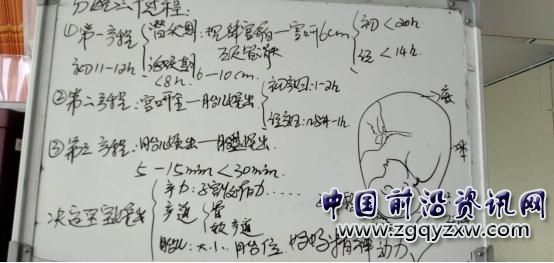 分娩三个过程:
①第一产程 潜伏期: 规律宫缩—宫口6cm 初<20h
经<14h
初11-12h 活跃期 6-10cm
<8h
②第二产程: 宫口全—胎儿娩出 初产妇: 1-2h
③第三产程: 胎儿娩出—胎盘娩出
5-15min <30min
产力: 子宫收缩力......
决定
产道 骨
软产道
胎儿: 大小. 胎位. 精神动力
底
中国前沿资讯网
www.zgqyzxw.com